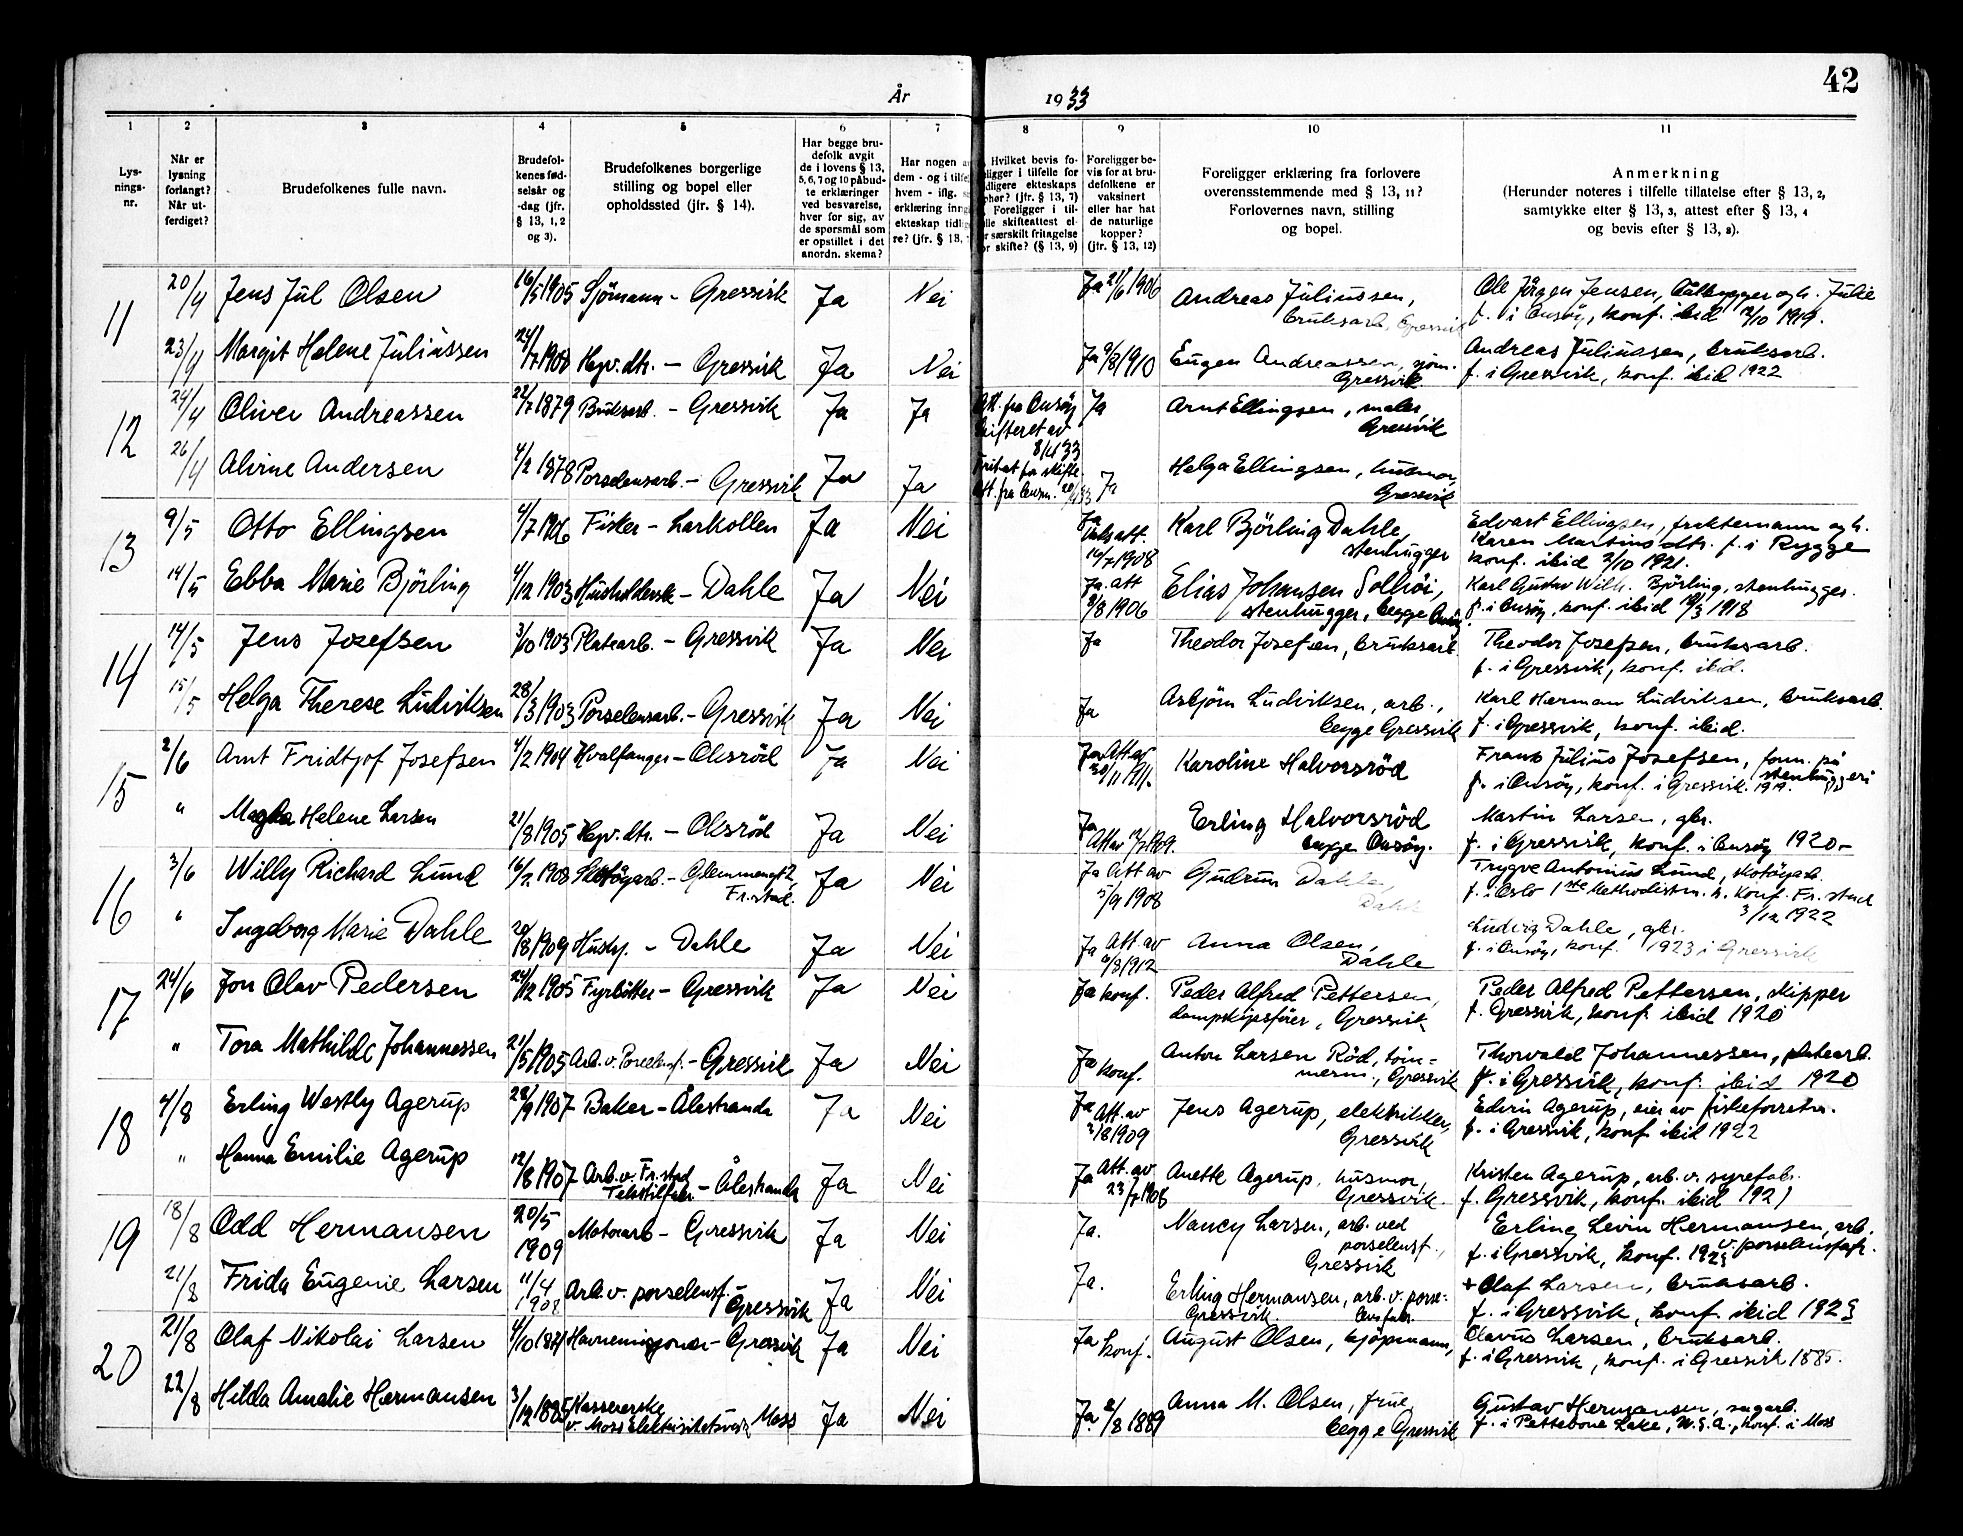 42
År 1933
1 2 3 4 5 6 7 8 9 10 11
Lysningsnr.
Når er lysning forlangt? Når utferdiget?
Brudefolkenes fulle navn.
Brudefolkenes fødselsår og -dag (jfr. § 13, 1, 2 og 3).
Brudefolkenes borgerlige stilling og bopel eller opholdssted (jfr. § 14).
Har begge brudefolk avgit de i lovens § 13, 5, 6, 7 og 10 påbudte erklæringer ved besvarelse, hver for sig, av de spørsmål som er opstillet i det anordn. skema?
Har nogen
dem - og i
hvem - iflg.
erklæring
ekteskap
re? (jfr. § 13,
Hvilket bevis fo-
ligger i tilfelle for
dligere ekteskaps
phør? (jfr. § 13, 7)
Foreligger i til-
skifteattest el-
særskilt fritagelse
skifte? (§ 13, 9)
Foreligger bevis for at brudefolkene er vaksinert eller har hat de naturlige kopper? (jfr. § 13, 12)
Foreligger erklæring fra forlovere overensstemmende med § 13, 11? Forlovernes navn, stilling og bopel.
Anmerkning
(Herunder noteres i tilfelle tillatelse efter § 13, 2,
samtykke efter § 13, 3, attest efter § 13, 4
og bevis efter § 13, 8).
11 20/4 Jens Jul Olsen 16/5 1905 Sjömann - Gressvik Ja Nei Ja 21/6 1906 Andreas Juliussen, bruksarb. Gressvik
Ole Jörgen Jensen, Julie
f. i Onsöy, konf. ibid 12/10 1919.
23/4 Margit Helene Juliussen 24/7 1908 Hjv. dtr. - Gressvik Ja Nei Ja 9/8 1910 Eugen Andreassen, sjöm. Gressvik
Andreas Juliussen, bruksarb.
f. i Gressvik, konf. ibid 1922
12 24/4 Oliver Andreassen 22/7 1879 Bruksarb. - Gressvik Ja Ja Att. fra Onsöy skifteret av 8/4 33 Ja Arnt Ellingsen, maler, Gressvik
26/4 Alvine Andersen 4/2 1878 Porselensarb. - Gressvik Ja Ja Fritat for skifte. Att. fra Onsøy 20/4 33 Ja Helga Ellingsen, husmor, Gressvik
13 9/5 Otto Ellingsen 4/7 1906 Fisker - Larkollen Ja Nei Ja Vaks att. 16/7 1908 Karl Björling Dahle, stenhugger
Edvart Ellingsen, fraktemann og h.
Karen Martins dtr. f. i Rygge
konf. ibid 2/10 1921.
14/5 Ebba Marie Björling 4/12 1903 Husholderske - Dahle Ja Nei Ja. att 9/8 1906 Elias Johansen Solhöi, stenhugger, begge Onsöy
Karl Gustav Wilh. Björling, stenhugger.
f. i Onsöy, konf. ibid 10/3 1918
14 14/5 Jens Josefsen 3/10 1903 Platearb. - Gressvik Ja Nei Ja Theodor Josefsen, bruksarb.
Theodor Josefsen, bruksarb.
f. i Gressvik, konf. ibid.
15/5 Helga Therese Ludviksen 28/3 1903 Porselensarb. - Gressvik Ja Nei Ja Asbjörn Ludviksen, arb., begge Gressvik
Karl Herman Ludviksen, bruksarb.
f. i Gressvik, konf. ibid.
15 2/6 Arnt Fridtjof Josefsen 4/2 1904 Hvalfanger - Oksröd Ja Nei Ja Att av 30/11 1911. Karoline Halvorsröd
Frants Julius Josefsen, form. på stenhuggeri
f. i Onsöy, konf. i Gressvik. 1919.
" Magda Helene Larsen 21/8 1905 Hjv. dtr. - Oksröd Ja Nei Ja Att av 12/7 1909. Erling Halvorsröd begge Onsöy.
Martin Larsen, gbr.
f. i Gressvik, konf. i Onsöy 1920-
16 3/6 Willy Richard Lund 16/2 1908 Skotöyarb. - Glemmengt 2, Fr.stad. Ja Nei Ja Att av 5/9 1908 Gudrun Dahle, Dahle
Trygve Antonius Lund, skotöyarb.
f. i Oslo 1ste Methodistm. h. Konf. Fr. stad
3/12 1922
" Ingeborg Marie Dahle 20/8 1909 Husbj. - Dahle Ja Nei Ja Att av 6/8 1912 Anna Olsen, Dahle
Ludvig Dahle, gbr.
f. i Onsöy, konf. 1923 i Gressvik
17 24/6 Jon Olav Pedersen 24/12 1905 Fyrböter - Gressvik Ja Nei Ja konf. Peder Alfred Pettersen, dampskipsförer, Gressvik
Peder Alfred Pettersen, skipper
f. Gressvik, konf. ibid 1920
" Tora Mathilde Johannessen 21/5 1905 Arb. v. Porselensf. - Gressvik Ja Nei Ja konf. Anton Larsen Röd, tömmerm., Gressvik
Thorvald Johannessen, platearb.
f. i Gressvik, konf. ibid 1920
18 4/8 Erling Westly Agerup 22/9 1907 Baker - Ålestranda Ja Nei Ja Att. av 3/8 1909 Jens Agerup, elektriker, Gressvik
Edvin Agerup, eier av fiskeforretn.
f. i Gressvik, konf ibid 1922
" Hanna Emilie Agerup 12/8 1907 Arb. v. Fr.stad Tekstilfabr. - Ålestranda Ja Nei Ja Att. av 23/7 1908 Anette Agerup, husmor, Gressvik.
Kristen Agerup, arb. v. syrefab.
f. Gressvik, konf. ibid 1921
19 18/8 Odd Hermansen 20/5 1909 Motorarb - Gressvik Ja Nei Ja. Nancy Larsen, arb. ved porselensf., Gressvik
Erling Levin Hermansen, arb. v. porselensfabr.
f. i Gressvik, konf. 1923
21/8 Frida Eugenie Larsen 11/4 1908 Arb. v. porselensf. - Gressvik Ja Nei Ja. Erling Hermansen, arb. v. porselensfabr. Gressvik.
+ Olaf Larsen, bruksarb.
f. i Gressvik, konf. ibid 1923
20 21/8 Olaf Nikolai Larsen 4/10 1871 Havnemisjonær - Gressvik Ja Nei Ja konf. August Olsen, kjöpmann,
Olavus Larsen, bruksarb.
f. i Gressvik, konf. i Gressvik 1885.
22/8 Hilda Amalie Hermansen 3/12 1885 Kassererske v. Moss Elektrisitetsverk Moss Ja Nei Ja. 2/8 1889 Anna M. Olsen, frue, begge Gressvik
Gustav Hermansen, sagarb.
f. i Pettebone Lake, U.S.A., konf. i Moss